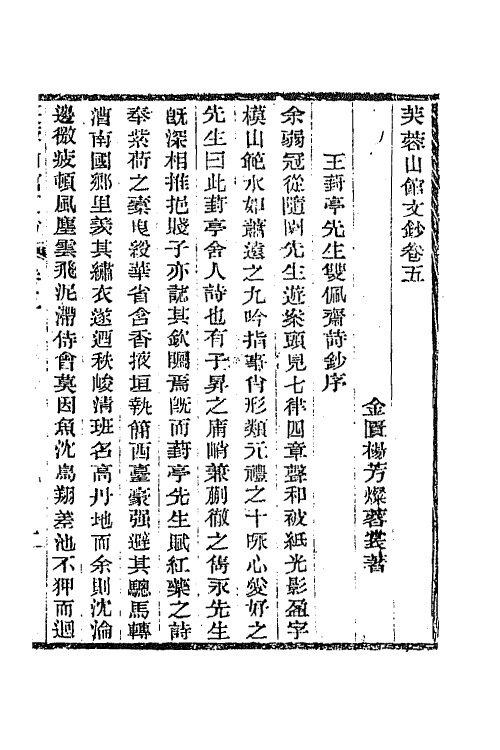 芙蓉山館文鈔卷五
金匱楊芳燦蓉裳著
王葑亭先生雙佩齋詩鈔序
余弱冠從隨園先生遊案頭見七律四章聲和被紙光影盈字
模山範水如蕭遠之九吟指事肖形類元禮之十詠心愛好之
先生曰此葑亭舍人詩也有子昇之庸峭兼蒯徹之雋永先生
既深相推挹賤子亦誌其欽矚焉既而葑亭先生賦紅藥之詩
奉紫荷之橐曳縠華省含香掖垣執簡西臺豪强避其驄馬轉
漕南國鄉里羨其繡衣遂迺秩峻清班名高丹地而余則沈淪
邊徼疲頓風塵雲飛泥滯侍會莫因魚沈鳥翔差池不狎而迴